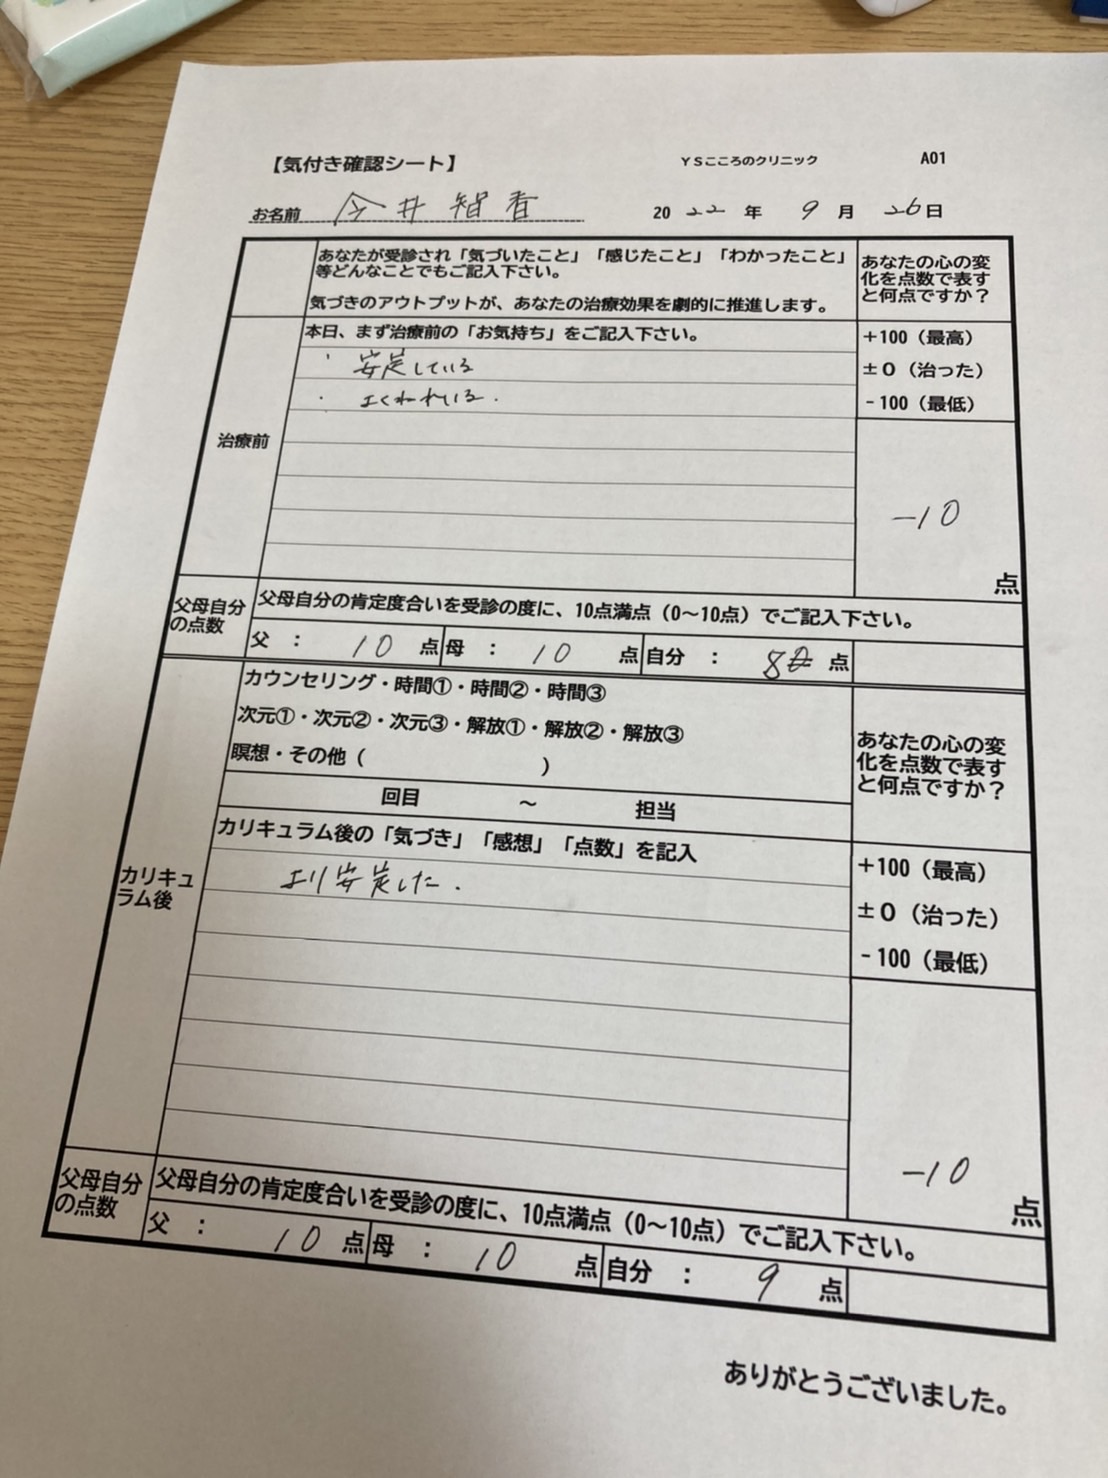 【気付き確認シート】 YSこころのクリニック A01
お名前 今井智香 2022年 9月 26日
あなたが受診され「気づいたこと」「感じたこと」「わかったこと」
等どんなことでもご記入下さい。
気づきのアウトプットが、あなたの治療効果を劇的に推進します。
あなたの心の変
化を点数で表す
と何点ですか？
治療前
本日、まず治療前の「お気持ち」をご記入下さい。
・安定している
・よくねれている.
+100（最高）
±0（治った）
-100（最低）
-10
点
父母自分
の点数
父母自分の肯定度合いを受診の度に、10点満点（0～10点）でご記入下さい。
父 ： 10 点 母 ： 10 点 自分 ： 8 点
カリキュ
ラム後
カウンセリング・時間①・時間②・時間③
次元①・次元②・次元③・解放①・解放②・解放③
瞑想・その他（ ）
回目 ～ 担当
あなたの心の変
化を点数で表す
と何点ですか？
カリキュラム後の「気づき」「感想」「点数」を記入
より安定した.
+100（最高）
±0（治った）
-100（最低）
-10
点
父母自分
の点数
父母自分の肯定度合いを受診の度に、10点満点（0～10点）でご記入下さい。
父 ： 10 点 母 ： 10 点 自分 ： 9 点
ありがとうございました。